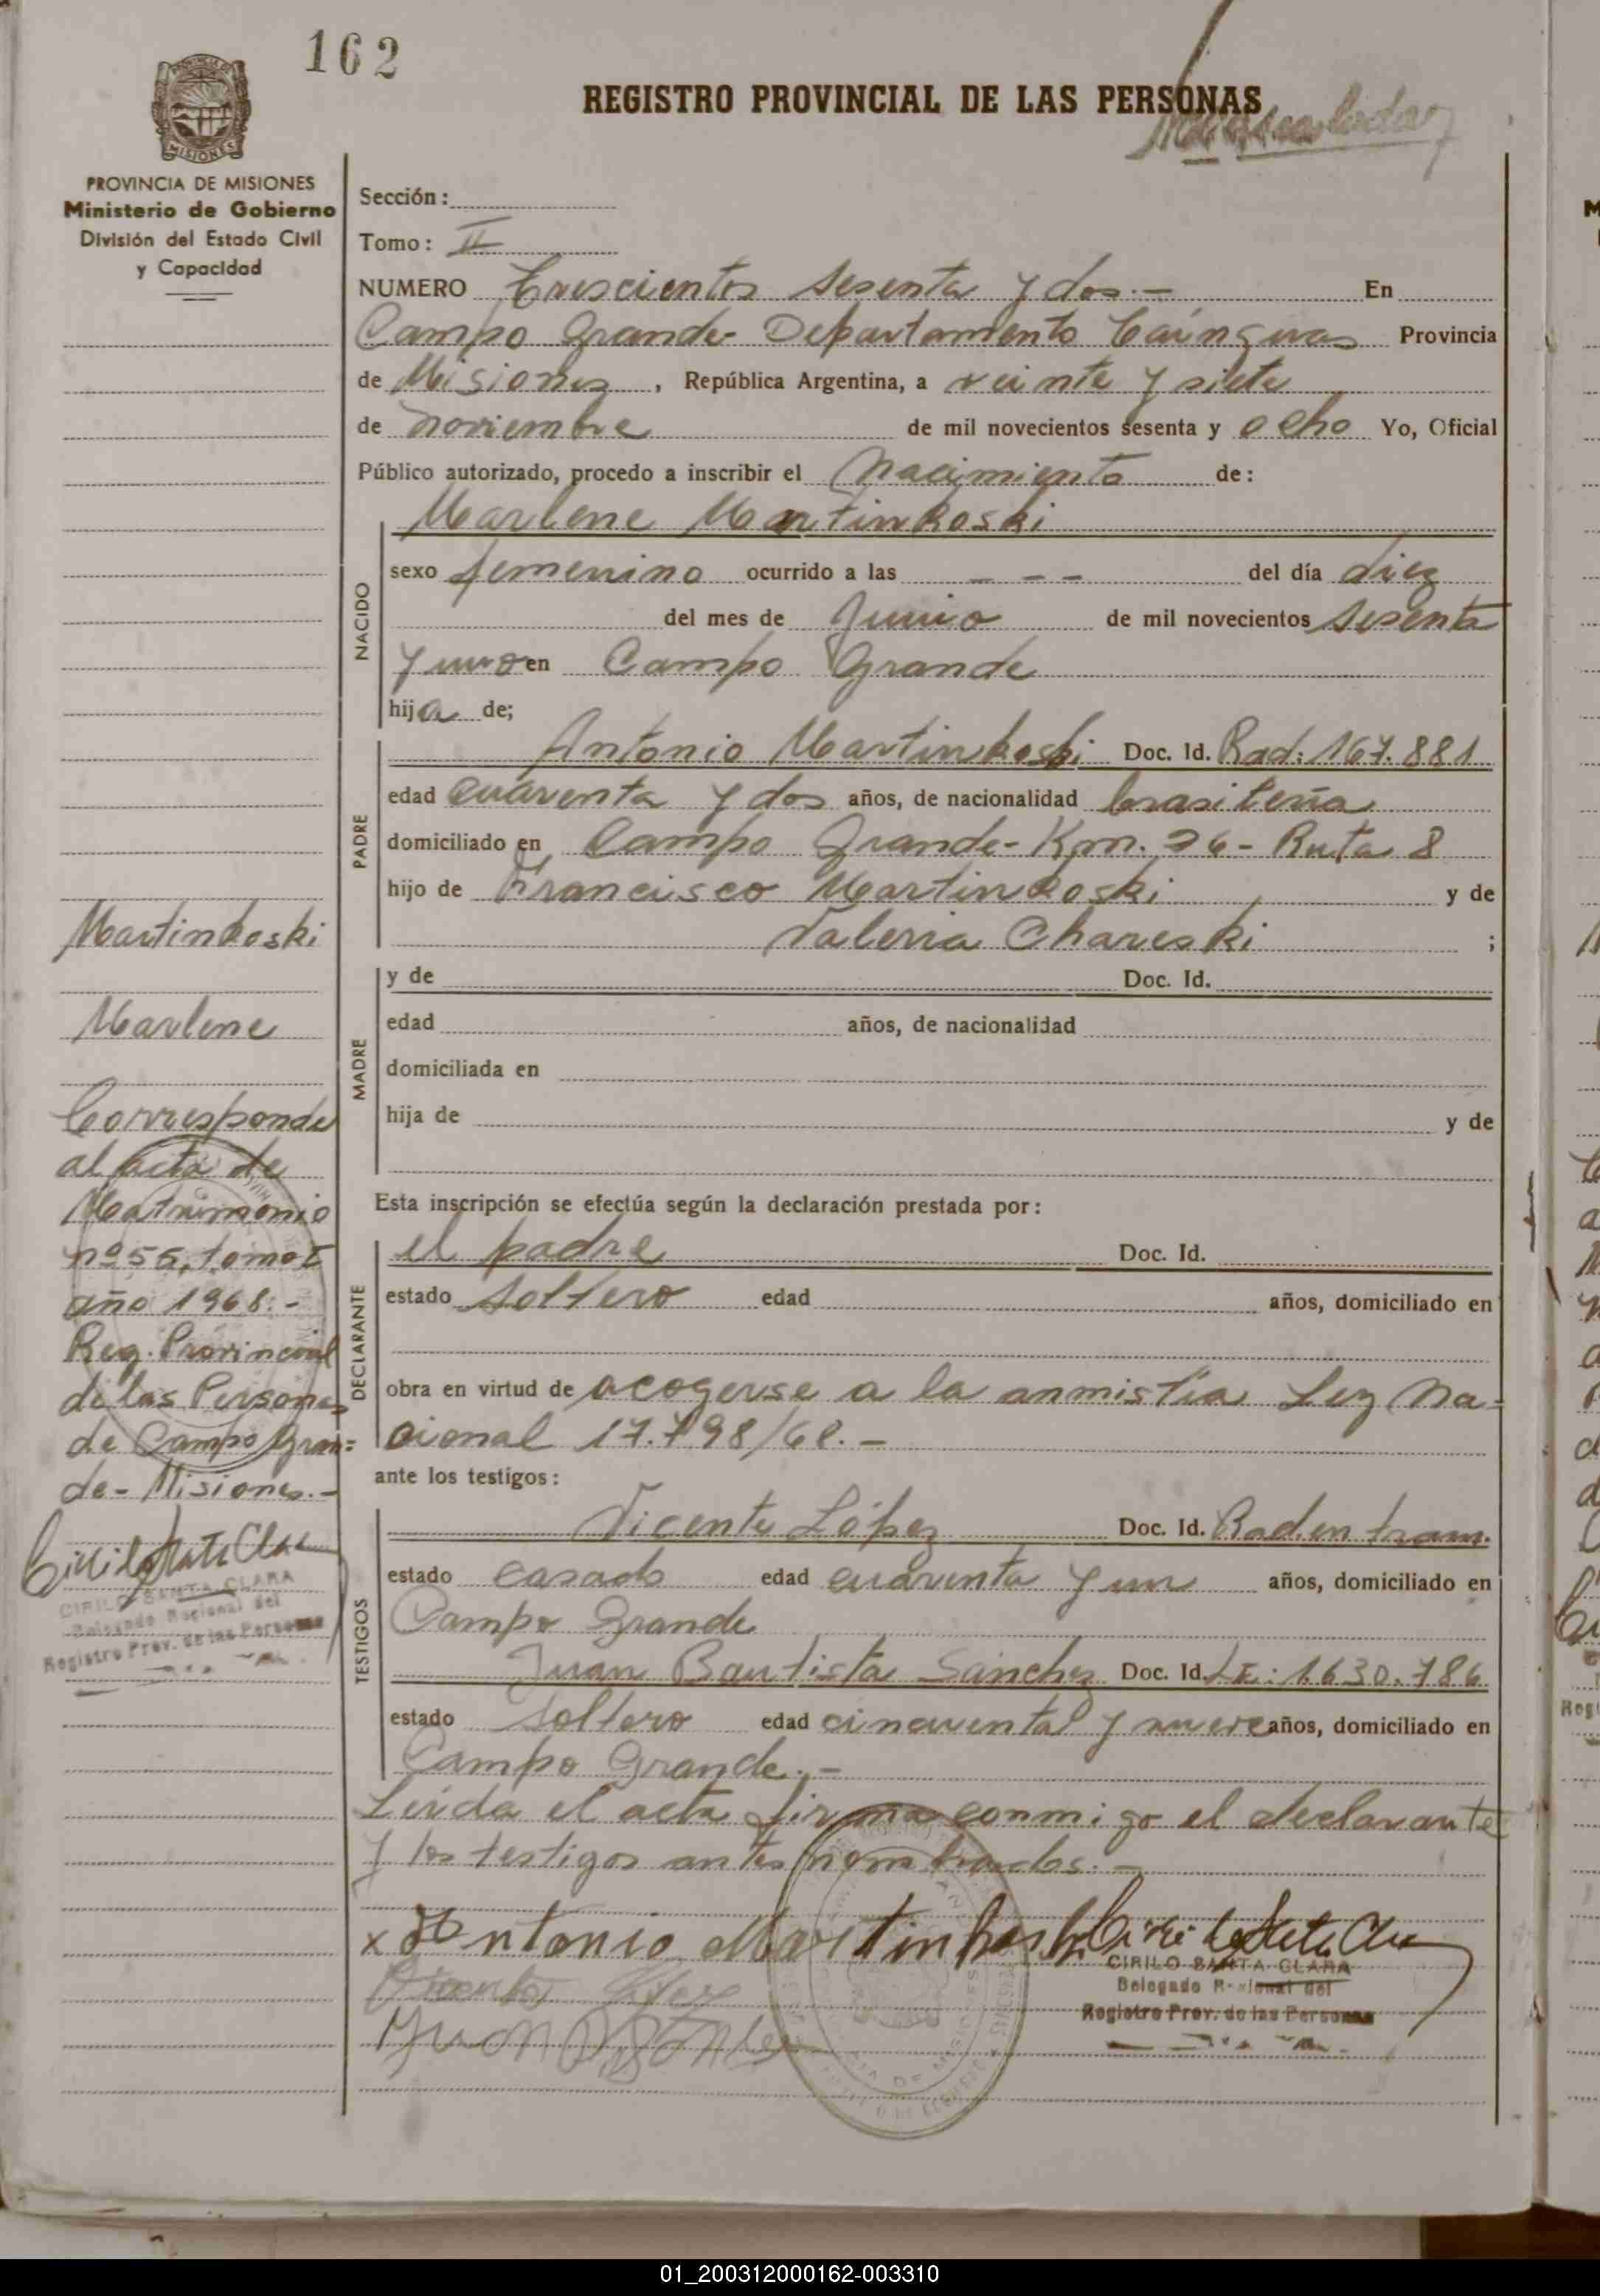 162
REGISTRO PROVINCIAL DE LAS PERSONAS
PROVINCIA DE MISIONES
MISIONES
PROVINCIA DE MISIONES
Ministerio de Gobierno
División del Estado Civil
y Capacidad
Sección:
Tomo: II
NUMERO Trescientos sesenta y dos.- En
Campo Grande- Departamento Cainguas Provincia
de Misiones, República Argentina, a veinte y siete
de noviembre de mil novecientos sesenta y ocho Yo, Oficial
Público autorizado, procedo a inscribir el Nacimiento de:
NACIDO
Marlene Martinkoski
sexo femenino ocurrido a las - - - del día diez
del mes de Junio de mil novecientos sesenta
y uno en Campo Grande
hija de;
PADRE
Antonio Martinkoski Doc. Id. Rad: 167.881
edad cuarenta y dos años, de nacionalidad brasileña
domiciliado en Campo Grande- Km. 26- Ruta 8
hijo de Francisco Martinkoski y de
Valeria Chareski ;
MADRE
y de Doc. Id.
edad años, de nacionalidad
domiciliada en
hija de y de
Esta inscripción se efectúa según la declaración prestada por:
DECLARANTE
el padre Doc. Id.
estado soltero edad años, domiciliado en
obra en virtud de acogerse a la anmistía Ley Na-
cional 17.798/68.-
ante los testigos:
TESTIGOS
Vicente López Doc. Id. Rad. en tram.
estado casado edad cuarenta y un años, domiciliado en
Campo Grande
Juan Bautista Sanchez Doc. Id. L.E: 1.630.786
estado soltero edad cincuenta y nueve años, domiciliado en
Campo Grande.-
Leida el acta firma conmigo el declarante
y los testigos antes nombrados.-
x Antonio Martinkoski
Vicente López
CIRILO SANTA CLARA
Delegado Regional del
Registro Prov. de las Personas
Martinkoski
Marlene
Corresponde
al acta de
Matrimonio
nº 56, tomo I
año 1968.-
Reg. Provincial
de las Personas
de Campo Gran=
de- Misiones.-
CIRILO SANTA CLARA
Delegado Regional del
Registro Prov. de las Personas
01_200312000162-003310